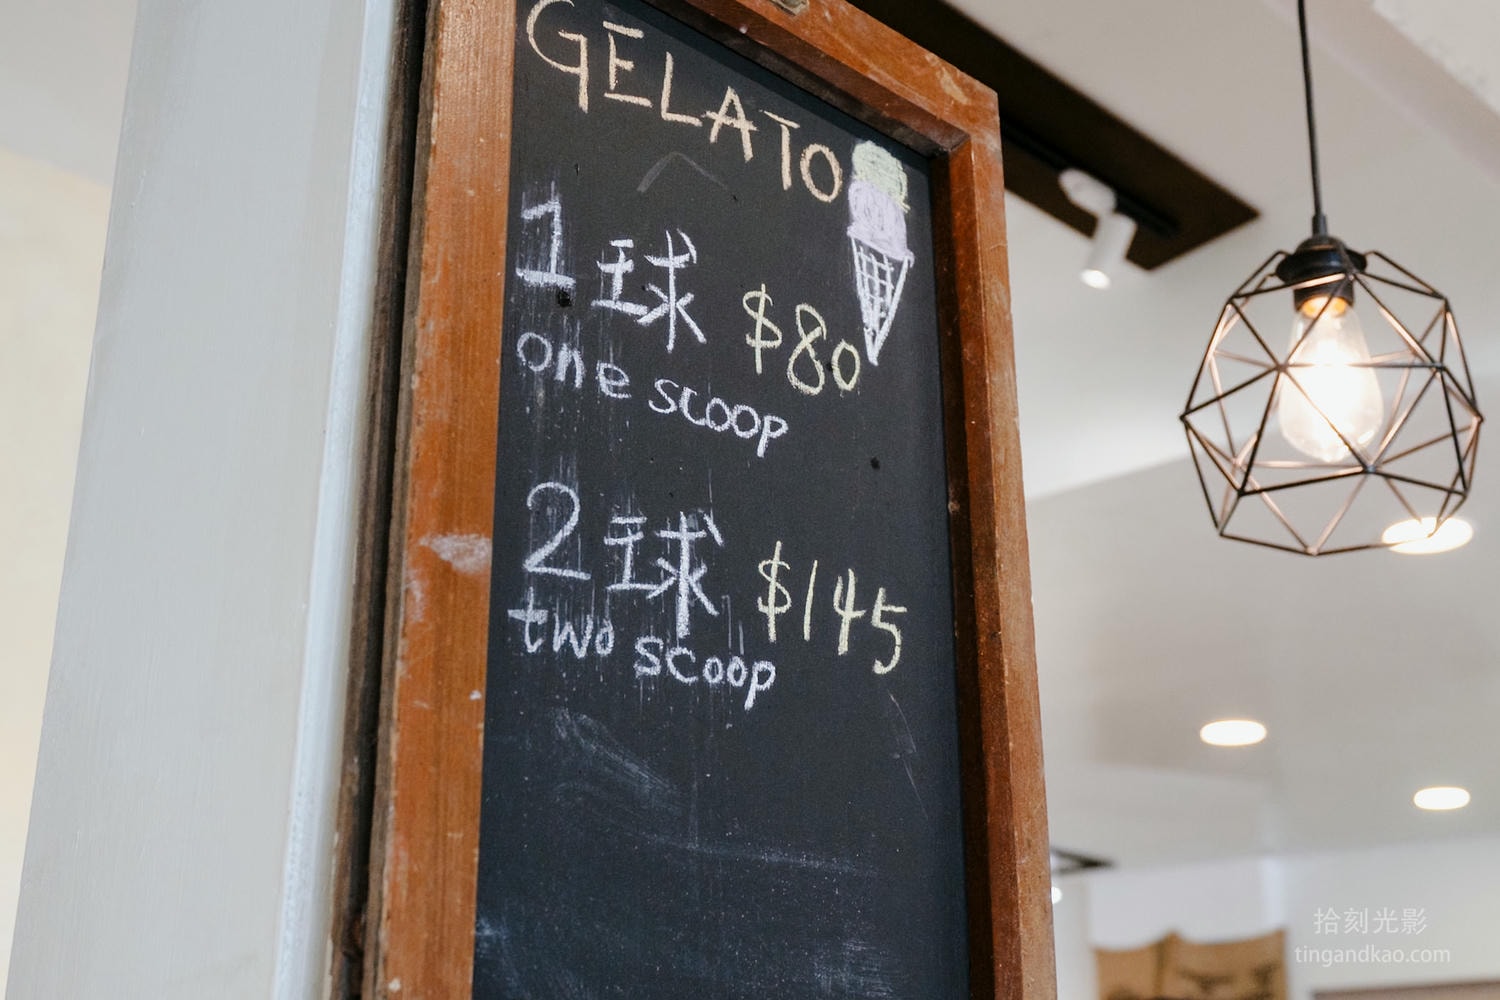 GELATO
1球 $80
one scoop
2球 $145
two scoop
拾刻光影
tingandkao.com